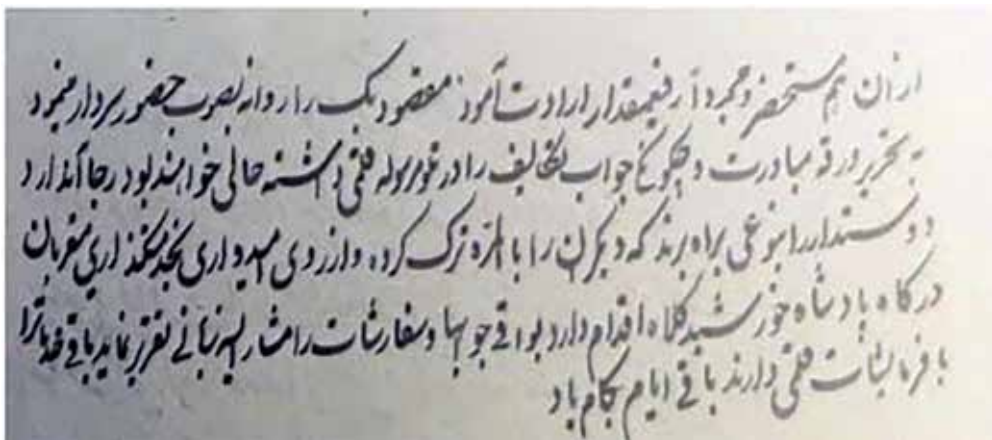 از ان هم مستحضر و مجردا رفیعمقدار ارادت آمود مقصود بک را روانه نصوب حضور سردار منمود
به تحریر ورقه مبادرت و چکونخ جواب تکالیف را در غور سوله قلمی داشته حالی خواهند بود رجا آندارد
دوستدار را بنوعی براه برند که دیکران را بالمره ترک کرده و از روی امیدواری بخدمتکذاری مقربان
درکاه پادشاه خورشید کلاه اقدام دارد بواقی جوابها و سفارشات را مشار الیه زبانی تقریر نماید باقی خدمات را
با فرمایشات قلمی دارند باقی ایام بکام باد